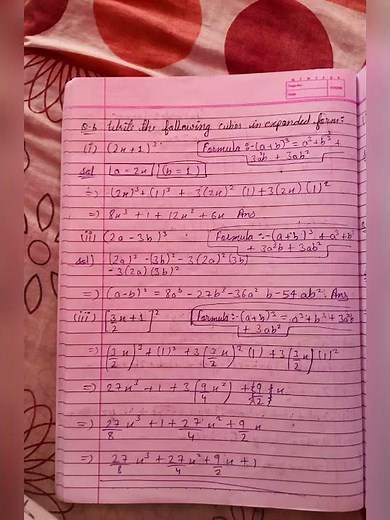 Q.6 Write the following cubes in expanded form:
(i) (2x+1)³ Formula :- (a+b)³ = a³+b³+
3a²b + 3ab²
Sol a = 2x b = 1
=> (2x)³+(1)³ + 3(2x)² (1)+3(2x)(1)²
=> 8x³ + 1 + 12x² + 6x Ans
(ii) (2a-3b)³ Formula :- (a+b)³ = a³+b³
+ 3a²b + 3ab²
Sol) (2a)³ -(3b)³ -3(2a)²(3b)
-3(2a)(3b)²
=> (a-b)³ = 8a³ -27b³ -36a² b -54 ab². Ans
(iii) [3x+1/2]² Formula:- (a+b)³ = a³+b³+3a²b
+ 3ab²
=> (3/2 x)³ +(1)³ +3(3/2 x)² (1) +3(3/2 x)(1)²
=> 27x³ +1 +3(9x²/4) +{9/2}x
=> 27/8 x³ +1 +27/4 x² +9/2 x
=> 27/8 x³ +27/4 x² +9/2 x +1